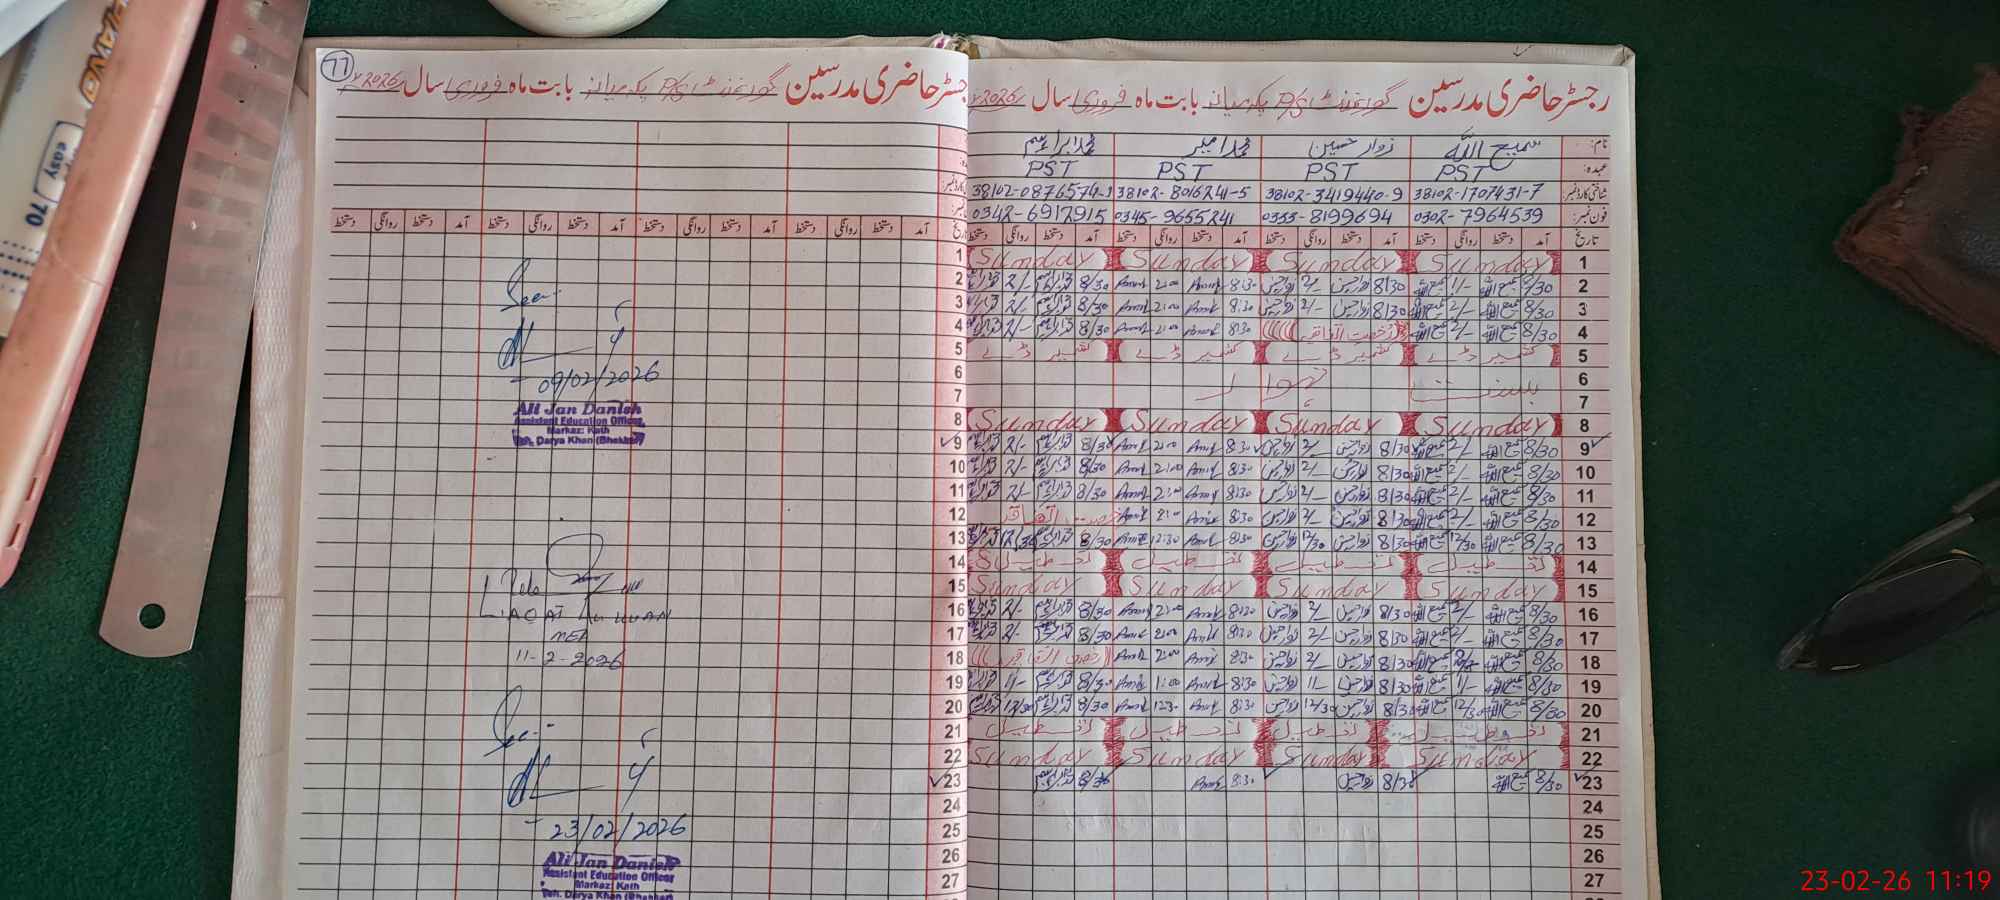 رجسٹر حاضری مدرسین گورنمنٹ P/S یکہ میانہ بابت ماہ فروری سال 2026ء
نام: سمیع اللہ زوار حسین محمد امیر محمد ابراہیم
عہدہ: PST PST PST PST
شناختی کارڈ نمبر: 38102-1707431-7 38102-3419440-9 38102-8016241-5 38102-0876574-1
فون نمبر: 0302-7964539 0333-8199694 0345-9655241 0342-6912915
تاریخ آمد دستخط روانگی دستخط آمد دستخط روانگی دستخط آمد دستخط روانگی دستخط آمد دستخط روانگی دستخط
1 Sunday Sunday Sunday Sunday 1
2 8/30 سمیع اللہ 1/- سمیع اللہ 8/30 زوار حسین 2/- زوار حسین 8:30 Amir 2:00 Amir 8/30 محمد ابراہیم 2/- محمد ابراہیم 2
3 8/30 سمیع اللہ 2/- سمیع اللہ 8/30 زوار حسین 2/- زوار حسین 8:30 Amir 2:00 Amir 8/30 محمد ابراہیم 2/- محمد ابراہیم 3
4 8/30 سمیع اللہ 2/- سمیع اللہ رخصت اتفاقیہ 8:30 Amir 2:00 Amir 8/30 محمد ابراہیم 2/- محمد ابراہیم 4
5 کشمیر ڈے کشمیر ڈے کشمیر ڈے کشمیر ڈے 5
6 بسنت تہوار 6
7 7
8 Sunday Sunday Sunday Sunday 8
9 8/30 سمیع اللہ 2/- سمیع اللہ 8/30 زوار حسین 2/- زوار حسین 8:30 Amir 2:00 Amir 8/30 محمد ابراہیم 2/- محمد ابراہیم 9
10 8/30 سمیع اللہ 2/- سمیع اللہ 8/30 زوار حسین 2/- زوار حسین 8:30 Amir 2:00 Amir 8/30 محمد ابراہیم 2/- محمد ابراہیم 10
11 8/30 سمیع اللہ 2/- سمیع اللہ 8/30 زوار حسین 2/- زوار حسین 8:30 Amir 2:00 Amir 8/30 محمد ابراہیم 2/- محمد ابراہیم 11
12 8/30 سمیع اللہ 2/- سمیع اللہ 8/30 زوار حسین 2/- زوار حسین 8:30 Amir 2:00 Amir رخصت اتفاقیہ 12
13 8/30 سمیع اللہ 12/30 سمیع اللہ 8/30 زوار حسین 12/30 زوار حسین 8:30 Amir 12:30 Amir 8/30 محمد ابراہیم 12/30 محمد ابراہیم 13
14 تعطیل تعطیل تعطیل تعطیل 14
15 Sunday Sunday Sunday Sunday 15
16 8/30 سمیع اللہ 2/- سمیع اللہ 8/30 زوار حسین 2/- زوار حسین 8:30 Amir 2:00 Amir 8/30 محمد ابراہیم 2/- محمد ابراہیم 16
17 8/30 سمیع اللہ 2/- سمیع اللہ 8/30 زوار حسین 2/- زوار حسین 8:30 Amir 2:00 Amir 8/30 محمد ابراہیم 2/- محمد ابراہیم 17
18 8/30 سمیع اللہ سمیع اللہ 8/30 زوار حسین 2/- زوار حسین 8:30 Amir 2:00 Amir رخصت اتفاقیہ 18
19 8/30 سمیع اللہ 1/- سمیع اللہ 8/30 زوار حسین 1/- زوار حسین 8:30 Amir 1:00 Amir 8/30 محمد ابراہیم 1/- محمد ابراہیم 19
20 8/30 سمیع اللہ 12/30 سمیع اللہ 8/30 زوار حسین 12/30 زوار حسین 8:30 Amir 12:30 Amir 8/30 محمد ابراہیم 12/30 محمد ابراہیم 20
21 تعطیل تعطیل تعطیل تعطیل 21
22 Sunday Sunday Sunday Sunday 22
23 8/30 سمیع اللہ 8/30 زوار حسین 8:30 Amir 8/30 محمد ابراہیم 23
24 24
25 25
26 26
27 27
77
رجسٹر حاضری مدرسین گورنمنٹ P/S یکہ میانہ بابت ماہ فروری سال 2026ء
آمد دستخط روانگی دستخط آمد دستخط روانگی دستخط آمد دستخط روانگی دستخط آمد دستخط روانگی دستخط
Seen
09/02/2026
Ali Jan Danish
Assistant Education Officer
Markaz: Kath
Teh. Darya Khan (Bhakkar)
LIAQAT
MEA
11-2-2026
Seen
23/02/2026
Ali Jan Danish
Assistant Education Officer
Markaz: Kath
Teh. Darya Khan (Bhakkar)
easy
70
23-02-26 11:19